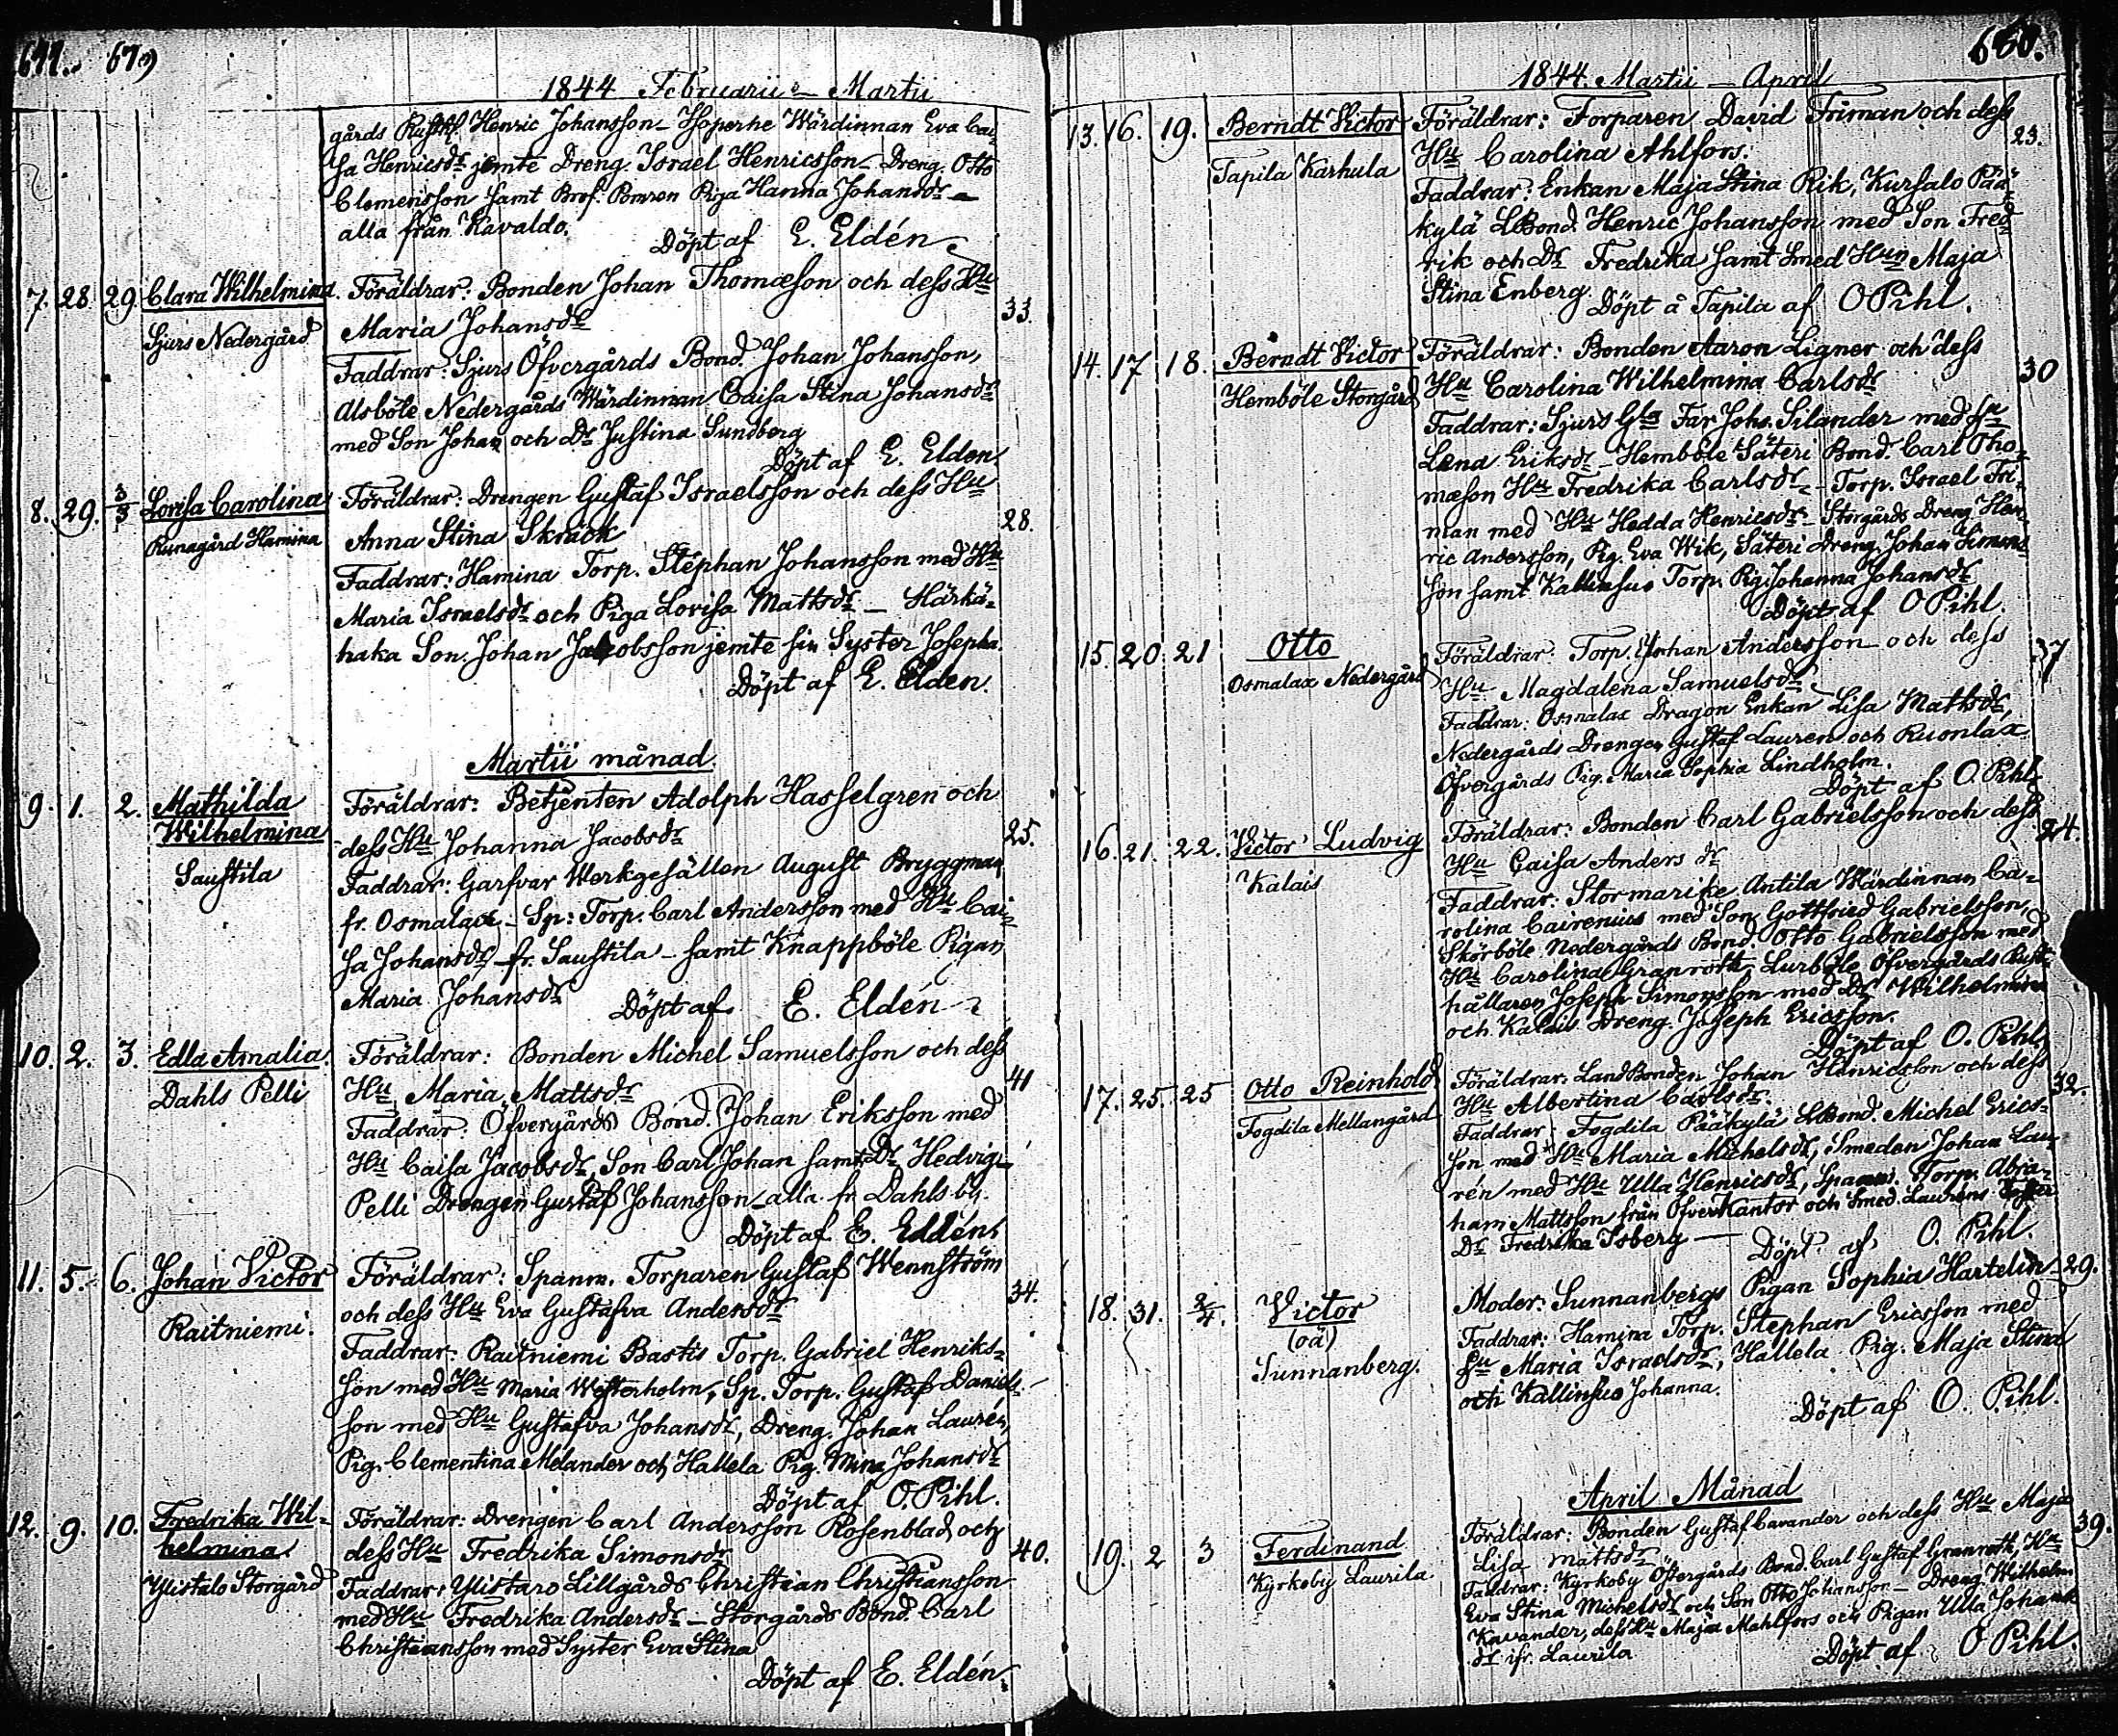 677. 679
1844 Februarii - Martii
gårds Rusth. Henric Johansson - Wärdinnan Eva Cai
sa Henricsdr jemte Dreng. Israel Henricsson - Dreng. Otto
Clemensson samt Piga Hanna Johansdr -
alla från Kavaldo.
Döpt af E. Eldén
7. 28 29. Clara Wilhelmina. Föräldrar: Bonden Johan Thomæson och dess Hu
Sjurs Nedergård Maria Johansdr 33.
Faddrar: Sjurs Öfvergårds Bond. Johan Johansson,
Alsböle Nedergårds Wärdinnan Caisa Stina Johansdr
med Son Johan och Dr Justina Sundberg
Döpt af E. Elden.
8. 29. 3/3 Lovisa Carolina Föräldrar: Drengen Gustaf Israelsson och dess Hu
Runagård Hamina Anna Stina Skräck 28.
Faddrar: Hamina Torp. Stephan Johansson med Hu
Maria Israelsdr och Piga Lovisa Mattsdr - Härkä-
haka Son. Johan Jacobsson jemte sin Syster Josepha.
Döpt af E. Elden.
Martii månad.
9. 1. 2. Mathilda Föräldrar: Betjenten Adolph Hasselgren och
Wilhelmina dess Hu Johanna Jacobsdr 25.
Saustila Faddrar: Garfvar Werkgesällen August Bryggman
fr. Osmalax - Sp: Torp. Carl Andersson med Hu Cai-
sa Johansdr fr. Saustila - samt Knappböle Pigan
Maria Johansdr Döpt af E. Eldén
10. 2. 3. Edla Amalia. Föräldrar: Bonden Michel Samuelsson och dess
Dahls Pelli Hu Maria Mattsdr 41
Faddrar: Öfvergårds Bond. Johan Eriksson med
Hu Caisa Jacobsdr, Son Carl Johan samt Dr Hedvig -
Pelli Drengen Gustaf Johansson - alla fr. Dahls by.
Döpt af E. Eldén
11. 5. 6. Johan Victor Föräldrar: Spanm. Torparen Gustaf Wennström
Raitniemi. och dess Hu Eva Gustafva Andersdr 34.
Faddrar: Raitniemi Bastis Torp. Gabriel Henriks-
son med Hu Maria Westerholm, Sp. Torp. Gustaf Daniels-
son med Hu Gustafva Johansdr, Dreng. Johan Laurén,
Pig. Clementina Melander och Hallela Pig. Mina Johansdr
Döpt af O. Pihl.
12. 9. 10. Fredrika Wil- Föräldrar: Drengen Carl Andersson Rosenblad och
helmina. dess Hu Fredrika Simonsdr 40.
Ylistalo Storgård Faddrar: Ylistaro Lillgårds Christian Christiansson
med Hu Fredrika Andersdr - Storgårds Bond. Carl
Christiansson med Syster Eva Stina
Döpt af E. Eldén
680.
1844. Martii - April
13. 16. 19. Berndt Victor Föräldrar: Torparen David Friman och dess
Tapila Karhula Hu Carolina Ahlfors. 23.
Faddrar: Enkan Maja Stina Rik, Kursalo Pää-
kylä LBond. Henric Johansson med Son Fred-
rik och Dr Fredrika samt Smed Hun Maja
Stina Enberg Döpt å Tapila af O Pihl.
14. 17 18. Berndt Victor Föräldrar: Bonden Aaron Ligner och dess
Hemböle Storgård Hu Carolina Wilhelmina Carlsdr 30
Faddrar: Sjurs Gla Far Johs. Silander med Hu
Lena Eriksdr - Hemböle Säteri Bond. Carl Tho-
mæson Hu Fredrika Carlsdr - Torp. Israel Fri-
man med Hu Hedda Henricsdr - Storgårds Dreng Hen-
ric Andersson, Pig. Eva Wik, Säteri Dreng. Johan Simons-
son samt Kallinsuo Torp. Pig. Johanna Johansdr
Döpt af O Pihl.
15. 20. 21 Otto Föräldrar: Torp. Johan Andersson och dess 37
Osmalax Nedergård Hu Magdalena Samuelsdr
Faddrar: Osmalax Dragon Enkan Lisa Mattsdr,
Nedergårds Drengen Gustaf Lauren och Ruonlax
Öfvergårds Pig. Maria Sophia Lindholm.
Döpt af O. Pihl
16. 21. 22. Victor Ludvig Föräldrar: Bonden Carl Gabrielsson och dess 24.
Kalais Hu Caisa Anders dr
Faddrar: Stormarike Antila Wärdinnan Ca-
rolina Cairenius med Son Gottfried Gabrielsson,
Skörböle Nedergårds Bond. Otto Gabrielsson med
Hu Carolina Granroth, Lurböle Öfvergårds Rust-
hållaren Joseph Simonsson med Dr Wilhelmina
och Kalais Dreng. Joseph Ericsson.
Döpt af O. Pihl
17. 25. 25 Otto Reinhold Föräldrar: LandBonden Johan Henricsson och dess
Fogdila Mellangård Hu Albertina Carlsdr. 32.
Faddrar: Fogdila Pääkylä LBond. Michel Erics-
son med Hu Maria Michelsdr, Smeden Johan Lau-
rén med Hu Ulla Henricsdr, Spanm. Torp. Abra-
ham Mattsson från Öfver Kantor och Smed. Laurens
Dr Fredrika Isberg - Döpt af O. Pihl.
18. 31. 2/4. Victor Moder: Sunnanbergs Pigan Sophia Hartelin 29.
(oä) Faddrar: Hamina Torp. Stephan Ericsson med
Sunnanberg. Hu Maria Israelsdr, Hallela Pig. Maja Stina
och Kallinsuo Johanna.
Döpt af O. Pihl.
April Månad
19. 2 3 Ferdinand Föräldrar: Bonden Gustaf Cavander och dess Hu Maja
Kyrkoby Laurila Lisa Mattsdr 39.
Faddrar: Kyrkoby Östergårds Bond. Carl Gustaf Granroth, Hu
Eva Stina Michelsdr och Son Otto Johansson - Dreng. Wilhelm
Kavander, dess Hu Maja Mahlfors och Pigan Ulla Johans
dr ifr. Laurila
Döpt af O Pihl.